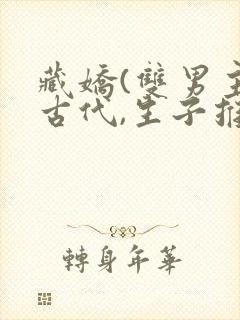 藏嬌(雙男主
古代,生子推
轉身年華